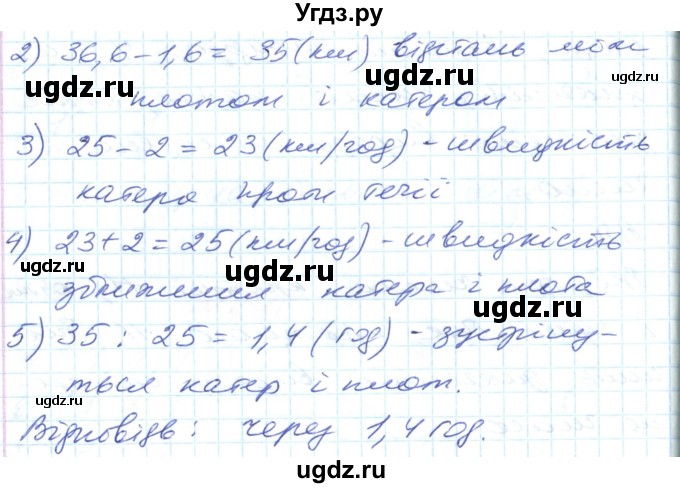 Угдз.ру
2) 36,6 - 1,6 = 35 (км) відстань між
плотом і катером
3) 25 - 2 = 23 (км/год) - швидкість
катера проти течії
4) 23 + 2 = 25 (км/год) - швидкість
зближення катера і плота
5) 35 : 25 = 1,4 (год) - зустріну-
ться катер і плот.
Відповідь: через 1,4 год.
ugdz.ru
ugdz.ru
ugdz.ru
ugdz.ru
ugdz.ru
ugdz.ru
ugdz.ru
ugdz.ru
ugdz.ru
ugdz.ru
ugdz.ru
ugdz.ru